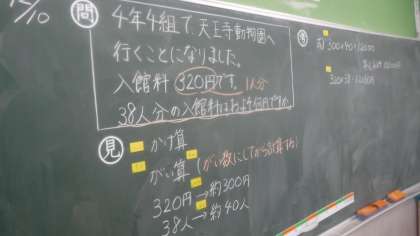 12/10
問
4年4組で、天王寺動物園へ
行くことになりました。
入館料 320円です。1人分
38人分の入館料はおよそ何円ですか。
見
かけ算
がい算(がい数にしてから計算する)
320円→約300円
38人→約40人
考
300×40=12000